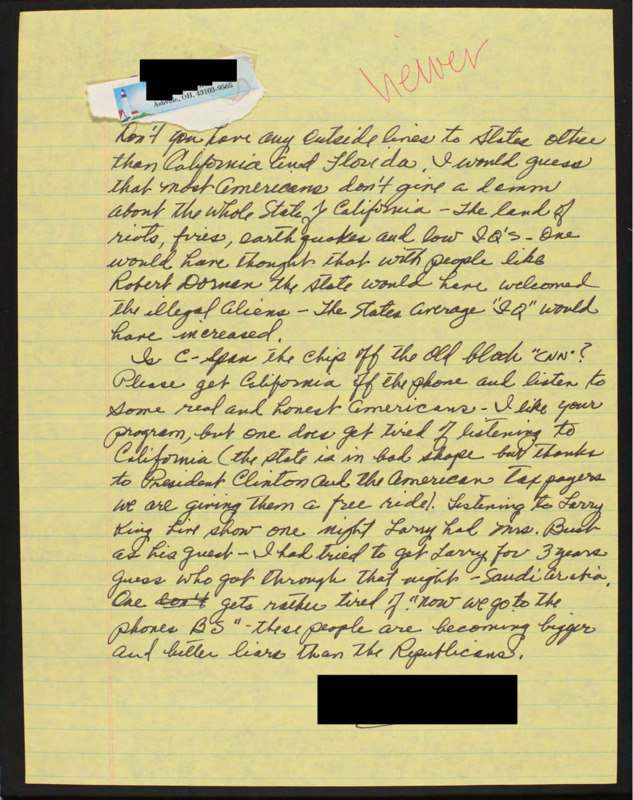 Viewer
Ashville, OH. 43103-9565
Don't you have any outside lines to States other
than California and Florida. I would guess
that most Americans don't give a damm
about the whole State of California - The land of
riots, fires, earthquakes and low IQ's - One
would have thought that with people like
Robert Dornan the state would have welcomed
the illegal aliens - The States average "IQ" would
have increased.
Is C-Span the chip off the old block "CNN"?
Please get California off the phone and listen to
some real and honest Americans - I like your
program, but one does get tired of listening to
California (the state is in bad shape but thanks
to President Clinton and the American tax payers
we are giving them a free ride). Listening to Larry
King Live show one night Larry had Mrs. Bush
as his guest - I had tried to get Larry for 3 years
guess who got through that night - Saudi Arabia.
One don't gets rather tired of "now we go to the
phones BS" - these people are becoming bigger
and better liars than the Republicans.